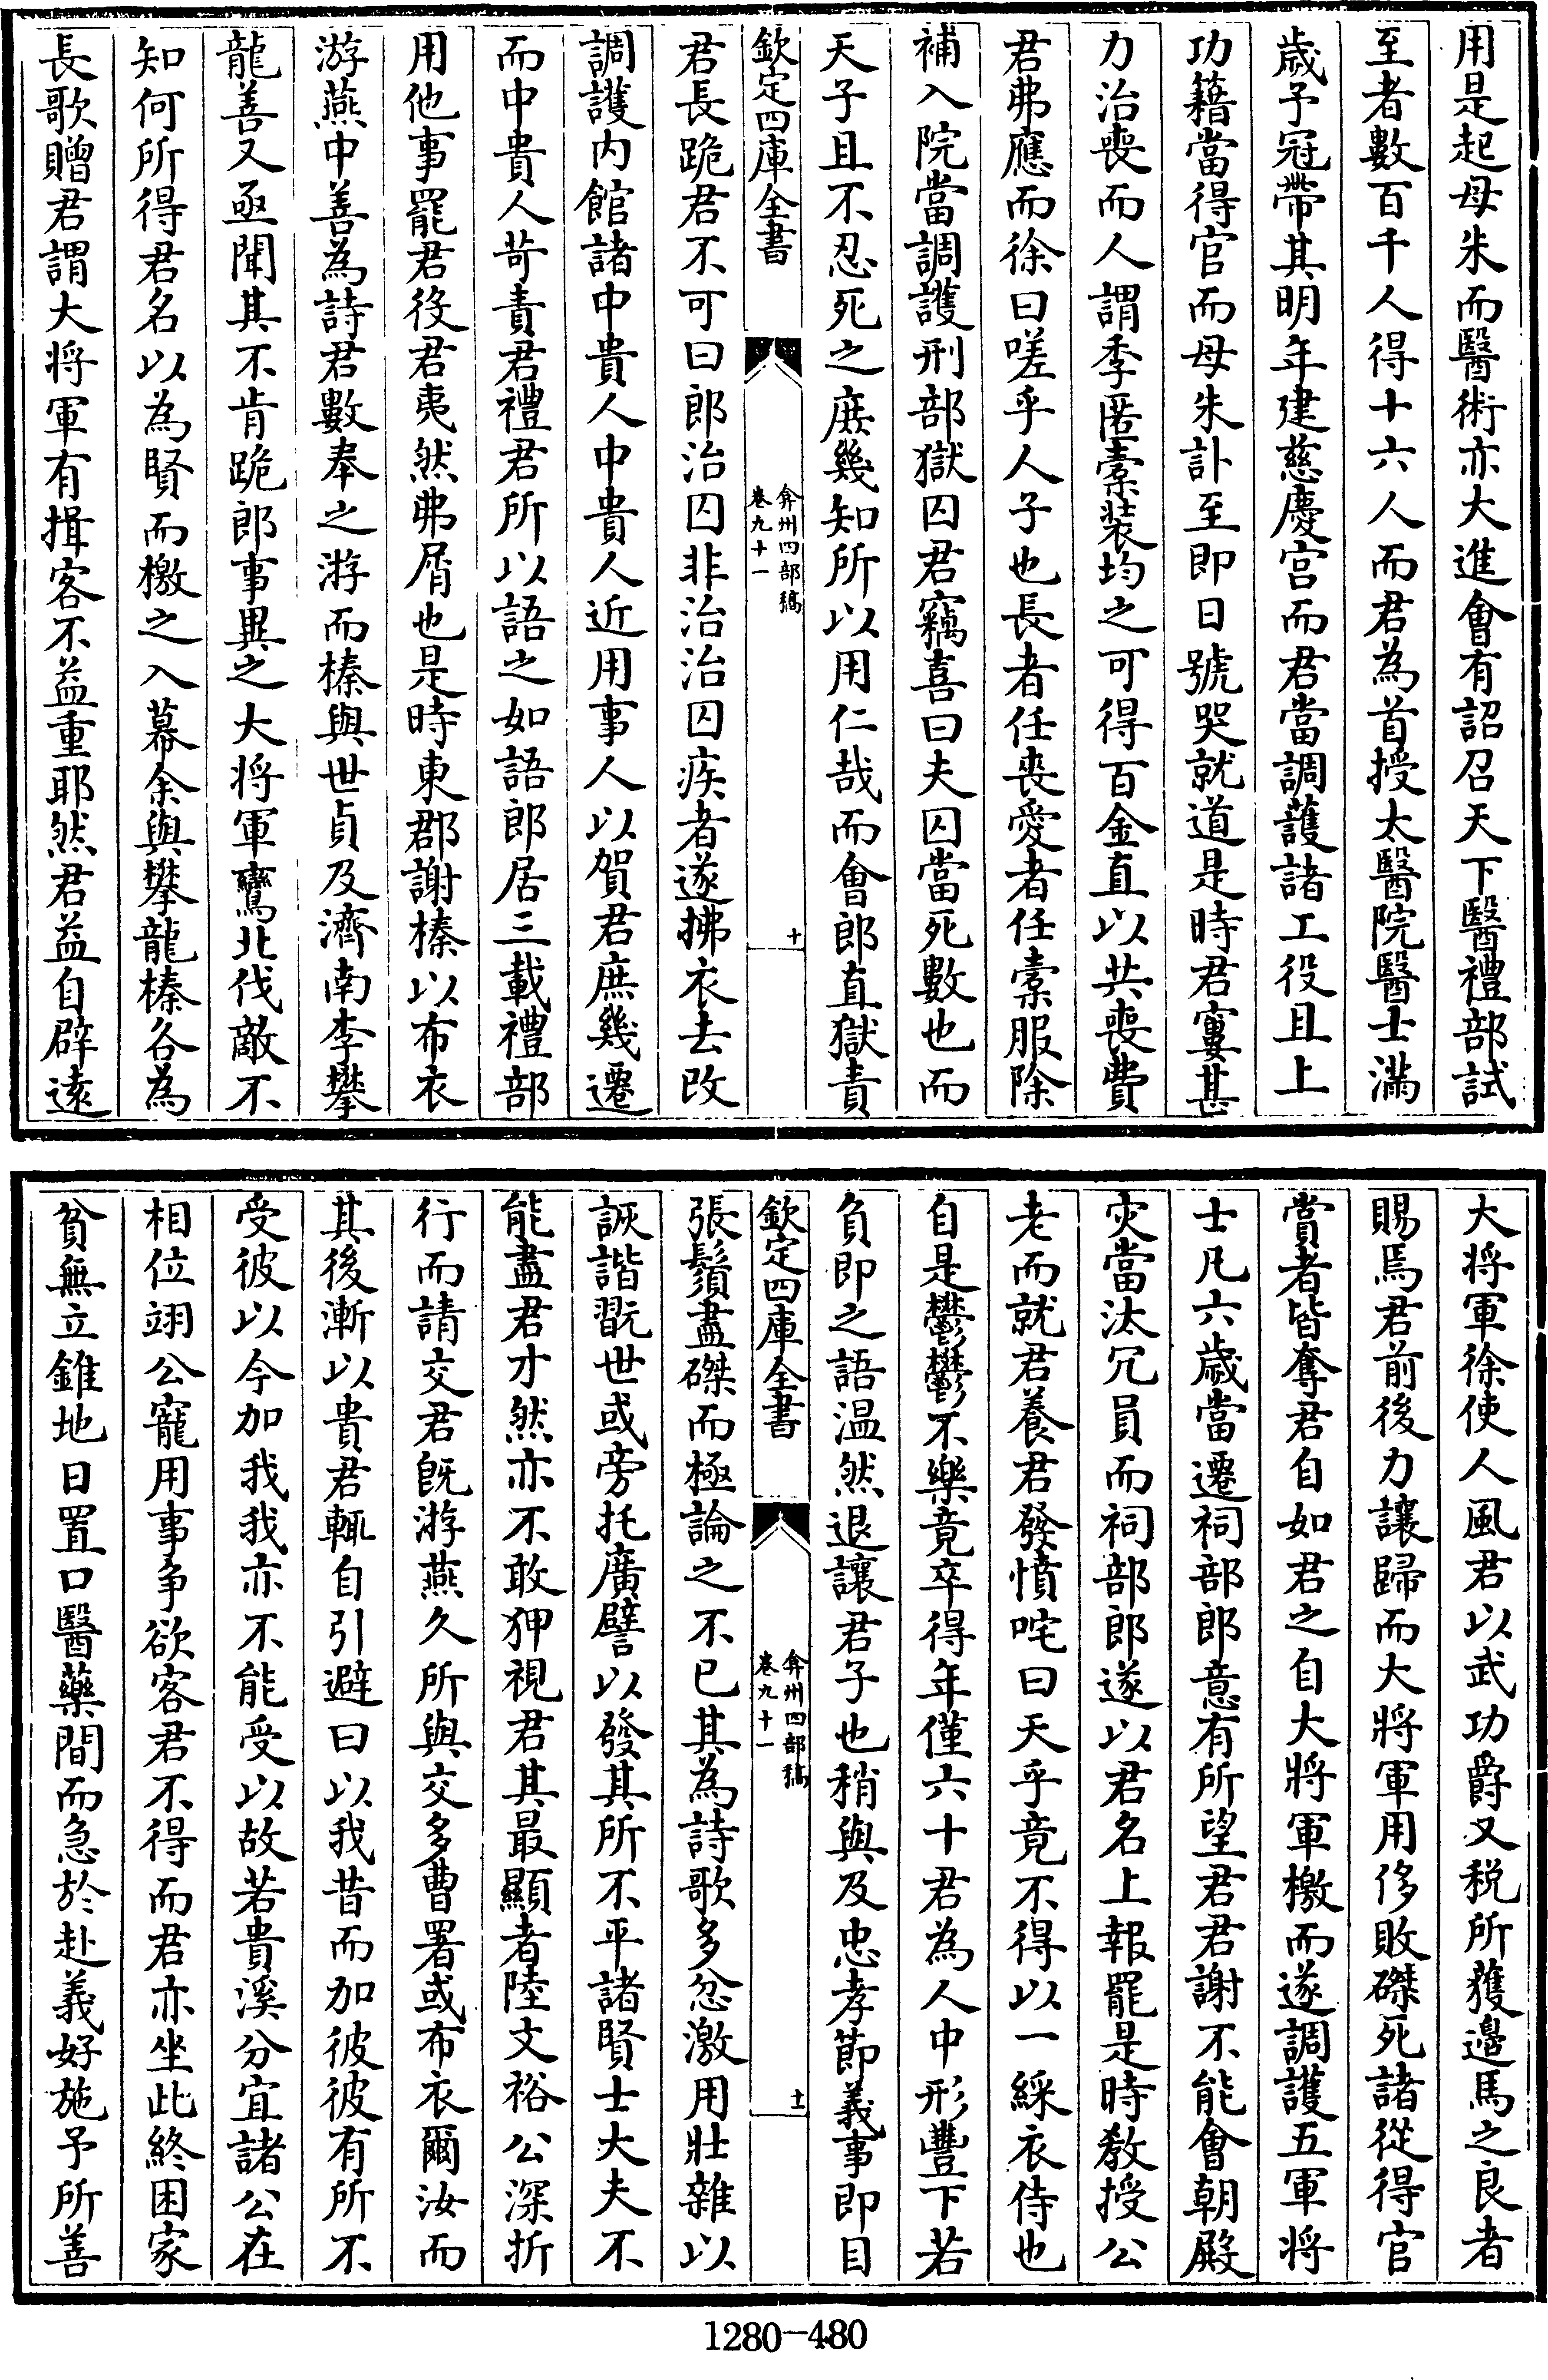 用是起母朱而醫術亦大進會有詔召天下醫禮部試
至者數百千人得十六人而君為首授太醫院醫士滿
歲予冠帶其明年建慈慶宫而君當調護諸工役且上
功籍當得官而母朱訃至即日號哭就道是時君寠甚
力治喪而人謂季匿橐装均之可得百金直以共喪費
君弗應而徐曰嗟乎人子也長者任喪愛者任橐服除
補入院當調護刑部獄囚君竊喜曰夫囚當死數也而
天子且不忍死之庶幾知所以用仁哉而會郎直獄責
欽定四庫全書
弇州四部稿
卷九十一
十
君長跪君不可曰郎治囚非治治囚疾者遂拂衣去改
調護内館諸中貴人中貴人近用事人以賀君庶幾遷
而中貴人苛責君禮君所以語之如語郎居三載禮部
用他事罷君役君夷然弗屑也是時東郡謝榛以布衣
游燕中善為詩君數奉之游而榛與世貞及濟南李攀
龍善又亟聞其不肯跪郎事異之大将軍鸞北伐敵不
知何所得君名以為賢而檄之入幕余與攀龍榛各為
長歌贈君謂大将軍有揖客不益重耶然君益自辟逺
大将軍徐使人風君以武功爵又税所獲邉馬之良者
賜焉君前後力讓歸而大將軍用侈敗磔死諸從得官
賞者皆奪君自如君之自大將軍檄而遂調護五軍將
士凡六歲當遷祠部郎意有所望君君謝不能會朝殿
灾當汰冗員而祠部郎遂以君名上報罷是時教授公
老而就君養君發憤咤曰天乎竟不得以一綵衣侍也
自是鬱鬱不樂竟卒得年僅六十君為人中形豐下若
負即之語温然退讓君子也稍與及忠孝節義事即目
欽定四庫全書
弇州四部稿
卷九十一
十一
張鬚盡磔而極論之不已其為詩歌多忿激用壮雜以
詼諧翫世或旁托廣譬以發其所不平諸賢士大夫不
能盡君才然亦不敢狎視君其最顯者陸文裕公深折
行而請交君既游燕久所與交多曹署或布衣爾汝而
其後漸以貴君輒自引避曰以我昔而加彼彼有所不
受彼以今加我我亦不能受以故若貴溪分宜諸公在
相位翊公寵用事争欲客君不得而君亦坐此終困家
貧無立錐地日置口醫藥間而急於赴義好施予所善
1280-480